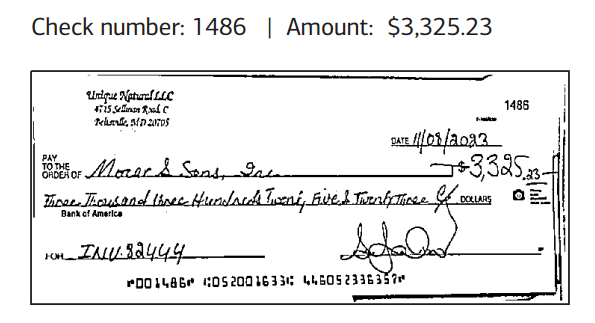 Check number: 1486 | Amount: $3,325.23
Unique Natural LLC
4715 Sellman Road, C
Beltsville, MD 20705
1486
DATE 11/08/2023
PAY TO THE ORDER OF Sons, Inc. $3,325.23
Three Thousand three Hundreds Twenty Five & Twenty Three DOLLARS
Bank of America
FOR INV. 82444
⑈001486⑈ ⑆052001633⑆ 446052336357⑈